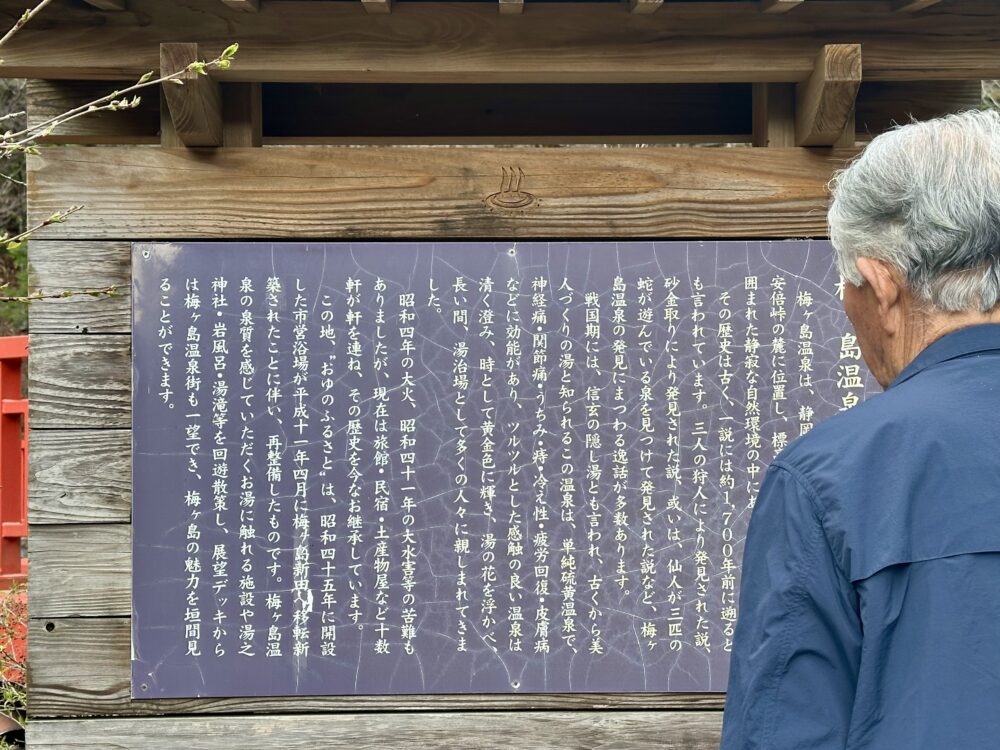 島温泉
梅ヶ島温泉は、静岡
安倍峠の麓に位置し、標
囲まれた静寂な自然環境の中にあ
その歴史は古く、一説には約1,700年前に遡ると
も言われています。三人の狩人により発見された説、
砂金取りにより発見された説、或いは、仙人が三匹の
蛇が遊んでいる泉を見つけて発見された説など、梅ヶ
島温泉の発見にまつわる逸話が多数あります。
戦国期には、信玄の隠し湯とも言われ、古くから美
人づくりの湯と知られるこの温泉は、単純硫黄温泉で、
神経痛・関節痛・うちみ・痔・冷え性・疲労回復・皮膚病
などに効能があり、ツルツルとした感触の良い温泉は
清く澄み、時として黄金色に輝き、湯の花を浮かべ、
長い間、湯治場として多くの人々に親しまれてきま
した。
昭和四年の大火、昭和四十一年の大水害等の苦難も
ありましたが、現在は旅館・民宿・土産物屋など十数
軒が軒を連ね、その歴史を今なお継承しています。
この地、〝おゆのふるさと〟は、昭和四十五年に開設
した市営浴場が平成十一年四月に梅ヶ島新田へ移転新
築されたことに伴い、再整備したものです。梅ヶ島温
泉の泉質を感じていただくお湯に触れる施設や湯之
神社・岩風呂・湯滝等を回遊散策し、展望デッキから
は梅ヶ島温泉街も一望でき、梅ヶ島の魅力を垣間見
ることができます。